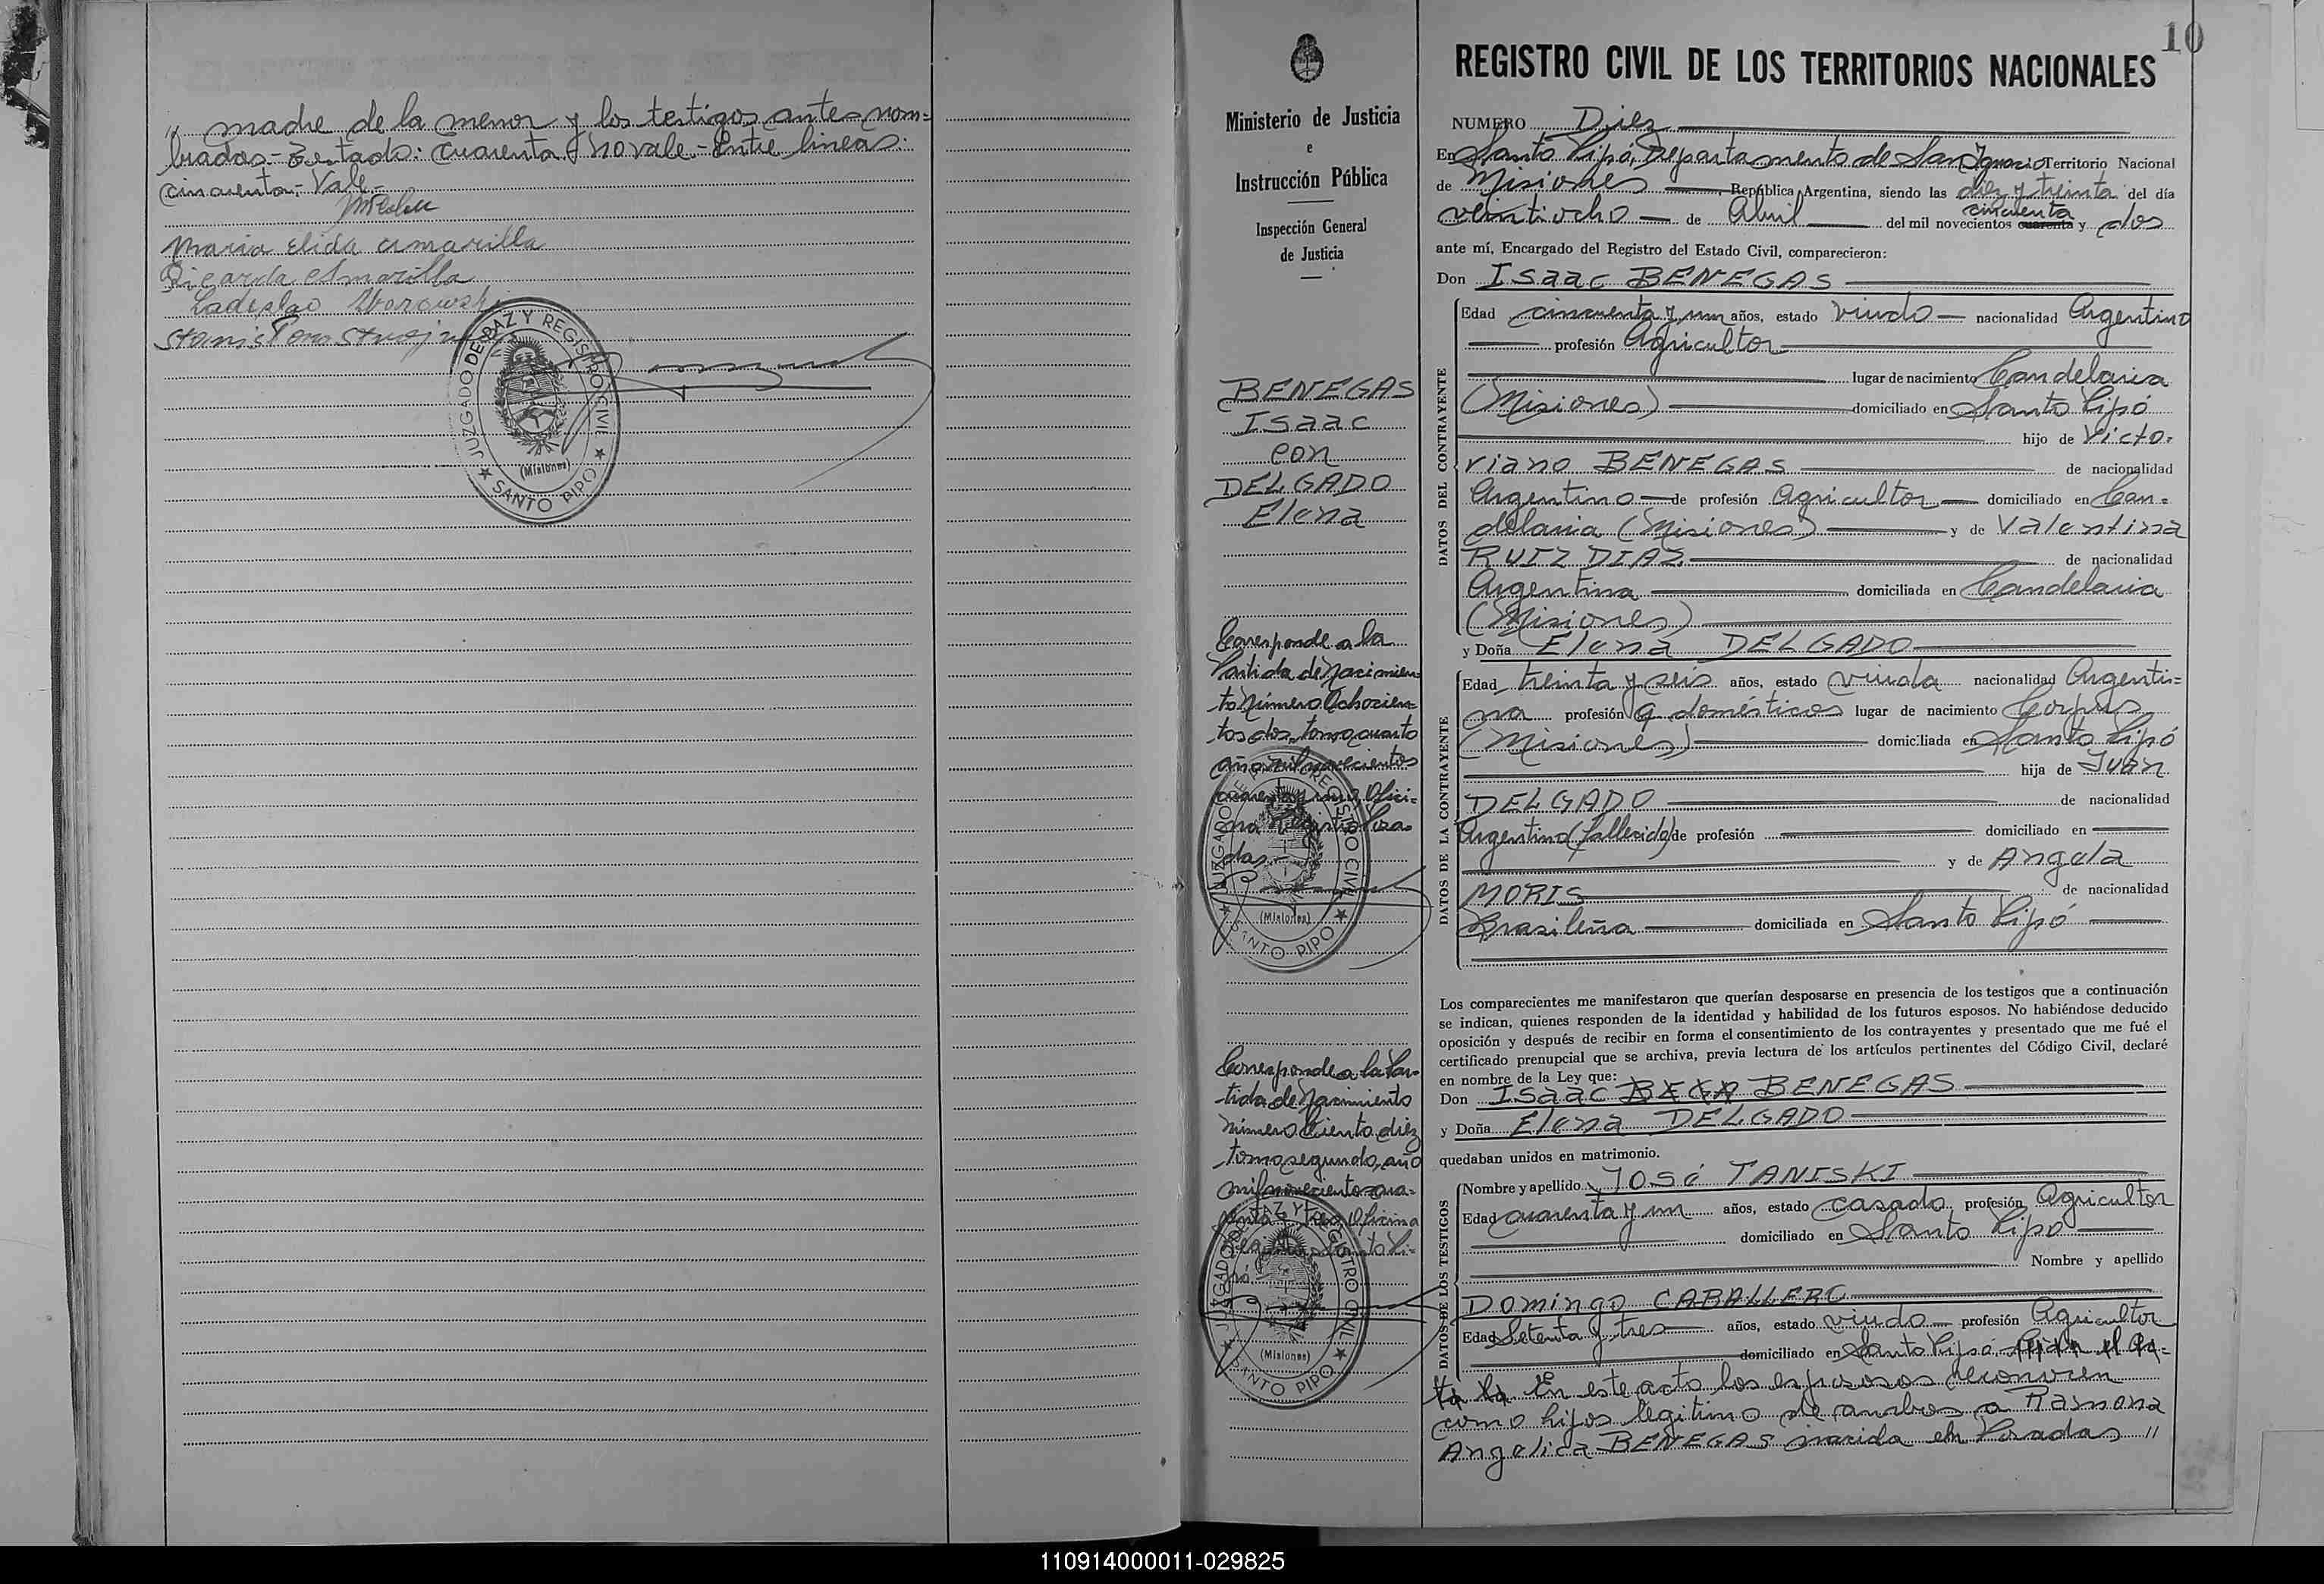 " madre de la menor y los testigos antes nom=
brados.- Testado: cuarenta: No vale.- Entre lineas:
cincuenta.- Vale.-
Maria Elida Amarilla
Ricarda Amarilla
Ladislao
JUZGADO DE PAZ Y REGISTRO CIVIL
(Misiones)
★ SANTO PIPO ★
10
Ministerio de Justicia
e
Instrucción Pública
Inspección General
de Justicia
BENEGAS
Isaac
con
DELGADO
Elena
Corresponde a la
Partida de Nacimien=
to Número Ochocien=
tos dos, tomo cuarto
año mil novecientos
cuarenta y uno, Ofici=
na Registro Posa=
das.-
JUZGADO DE PAZ Y REGISTRO CIVIL
(Misiones)
★ SANTO PIPO ★
Corresponde a la Par=
tida de Nacimiento
número Ciento diez
tomo segundo, año
mil novecientos cua=
renta y tres, Oficina
Registro Santo Pi=
pó.-
JUZGADO DE PAZ Y REGISTRO CIVIL
(Misiones)
★ SANTO PIPO ★
REGISTRO CIVIL DE LOS TERRITORIOS NACIONALES
NUMERO Diez
En Santo Pipó, Departamento de San Ignacio Territorio Nacional
de Misiones, República Argentina, siendo las diez y treinta del día
cincuenta
veintiocho de Abril del mil novecientos cuarenta y dos
ante mí, Encargado del Registro del Estado Civil, comparecieron:
Don Isaac BENEGAS
DATOS DEL CONTRAYENTE
Edad cincuenta y un años, estado viudo nacionalidad Argentino
profesión Agricultor
lugar de nacimiento Candelaria
(Misiones) domiciliado en Santo Pipó
hijo de Victo=
riano BENEGAS de nacionalidad
Argentino de profesión Agricultor domiciliado en Can=
delaria (Misiones) y de Valentina
RUIZ DIAZ de nacionalidad
Argentina domiciliada en Candelaria
(Misiones)
y Doña Elena DELGADO
DATOS DE LA CONTRAYENTE
Edad treinta y seis años, estado viuda nacionalidad Argenti=
na profesión q. domésticos lugar de nacimiento Corpus
(Misiones) domiciliada en Santo Pipó
hija de Juan
DELGADO de nacionalidad
Argentino (fallecido) de profesión domiciliado en
y de Angela
MORIS de nacionalidad
Brasileña domiciliada en Santo Pipó
Los comparecientes me manifestaron que querían desposarse en presencia de los testigos que a continuación
se indican, quienes responden de la identidad y habilidad de los futuros esposos. No habiéndose deducido
oposición y después de recibir en forma el consentimiento de los contrayentes y presentado que me fué el
certificado prenupcial que se archiva, previa lectura de los artículos pertinentes del Código Civil, declaré
en nombre de la Ley que:
Don Isaac BENEGAS
y Doña Elena DELGADO
quedaban unidos en matrimonio.
DATOS DE LOS TESTIGOS
Nombre y apellido José TANISKI
Edad cuarenta y un años, estado casado profesión Agricultor
domiciliado en Santo Pipó
Nombre y apellido
Domingo CABALLERO
Edad Setenta y tres años, estado viudo profesión Agricultor
domiciliado en Santo Pipó
En este acto los esposos reconocen
como hijos legitimo de ambos a Ramona
Angelica BENEGAS nacida en Posadas "
110914000011-029825